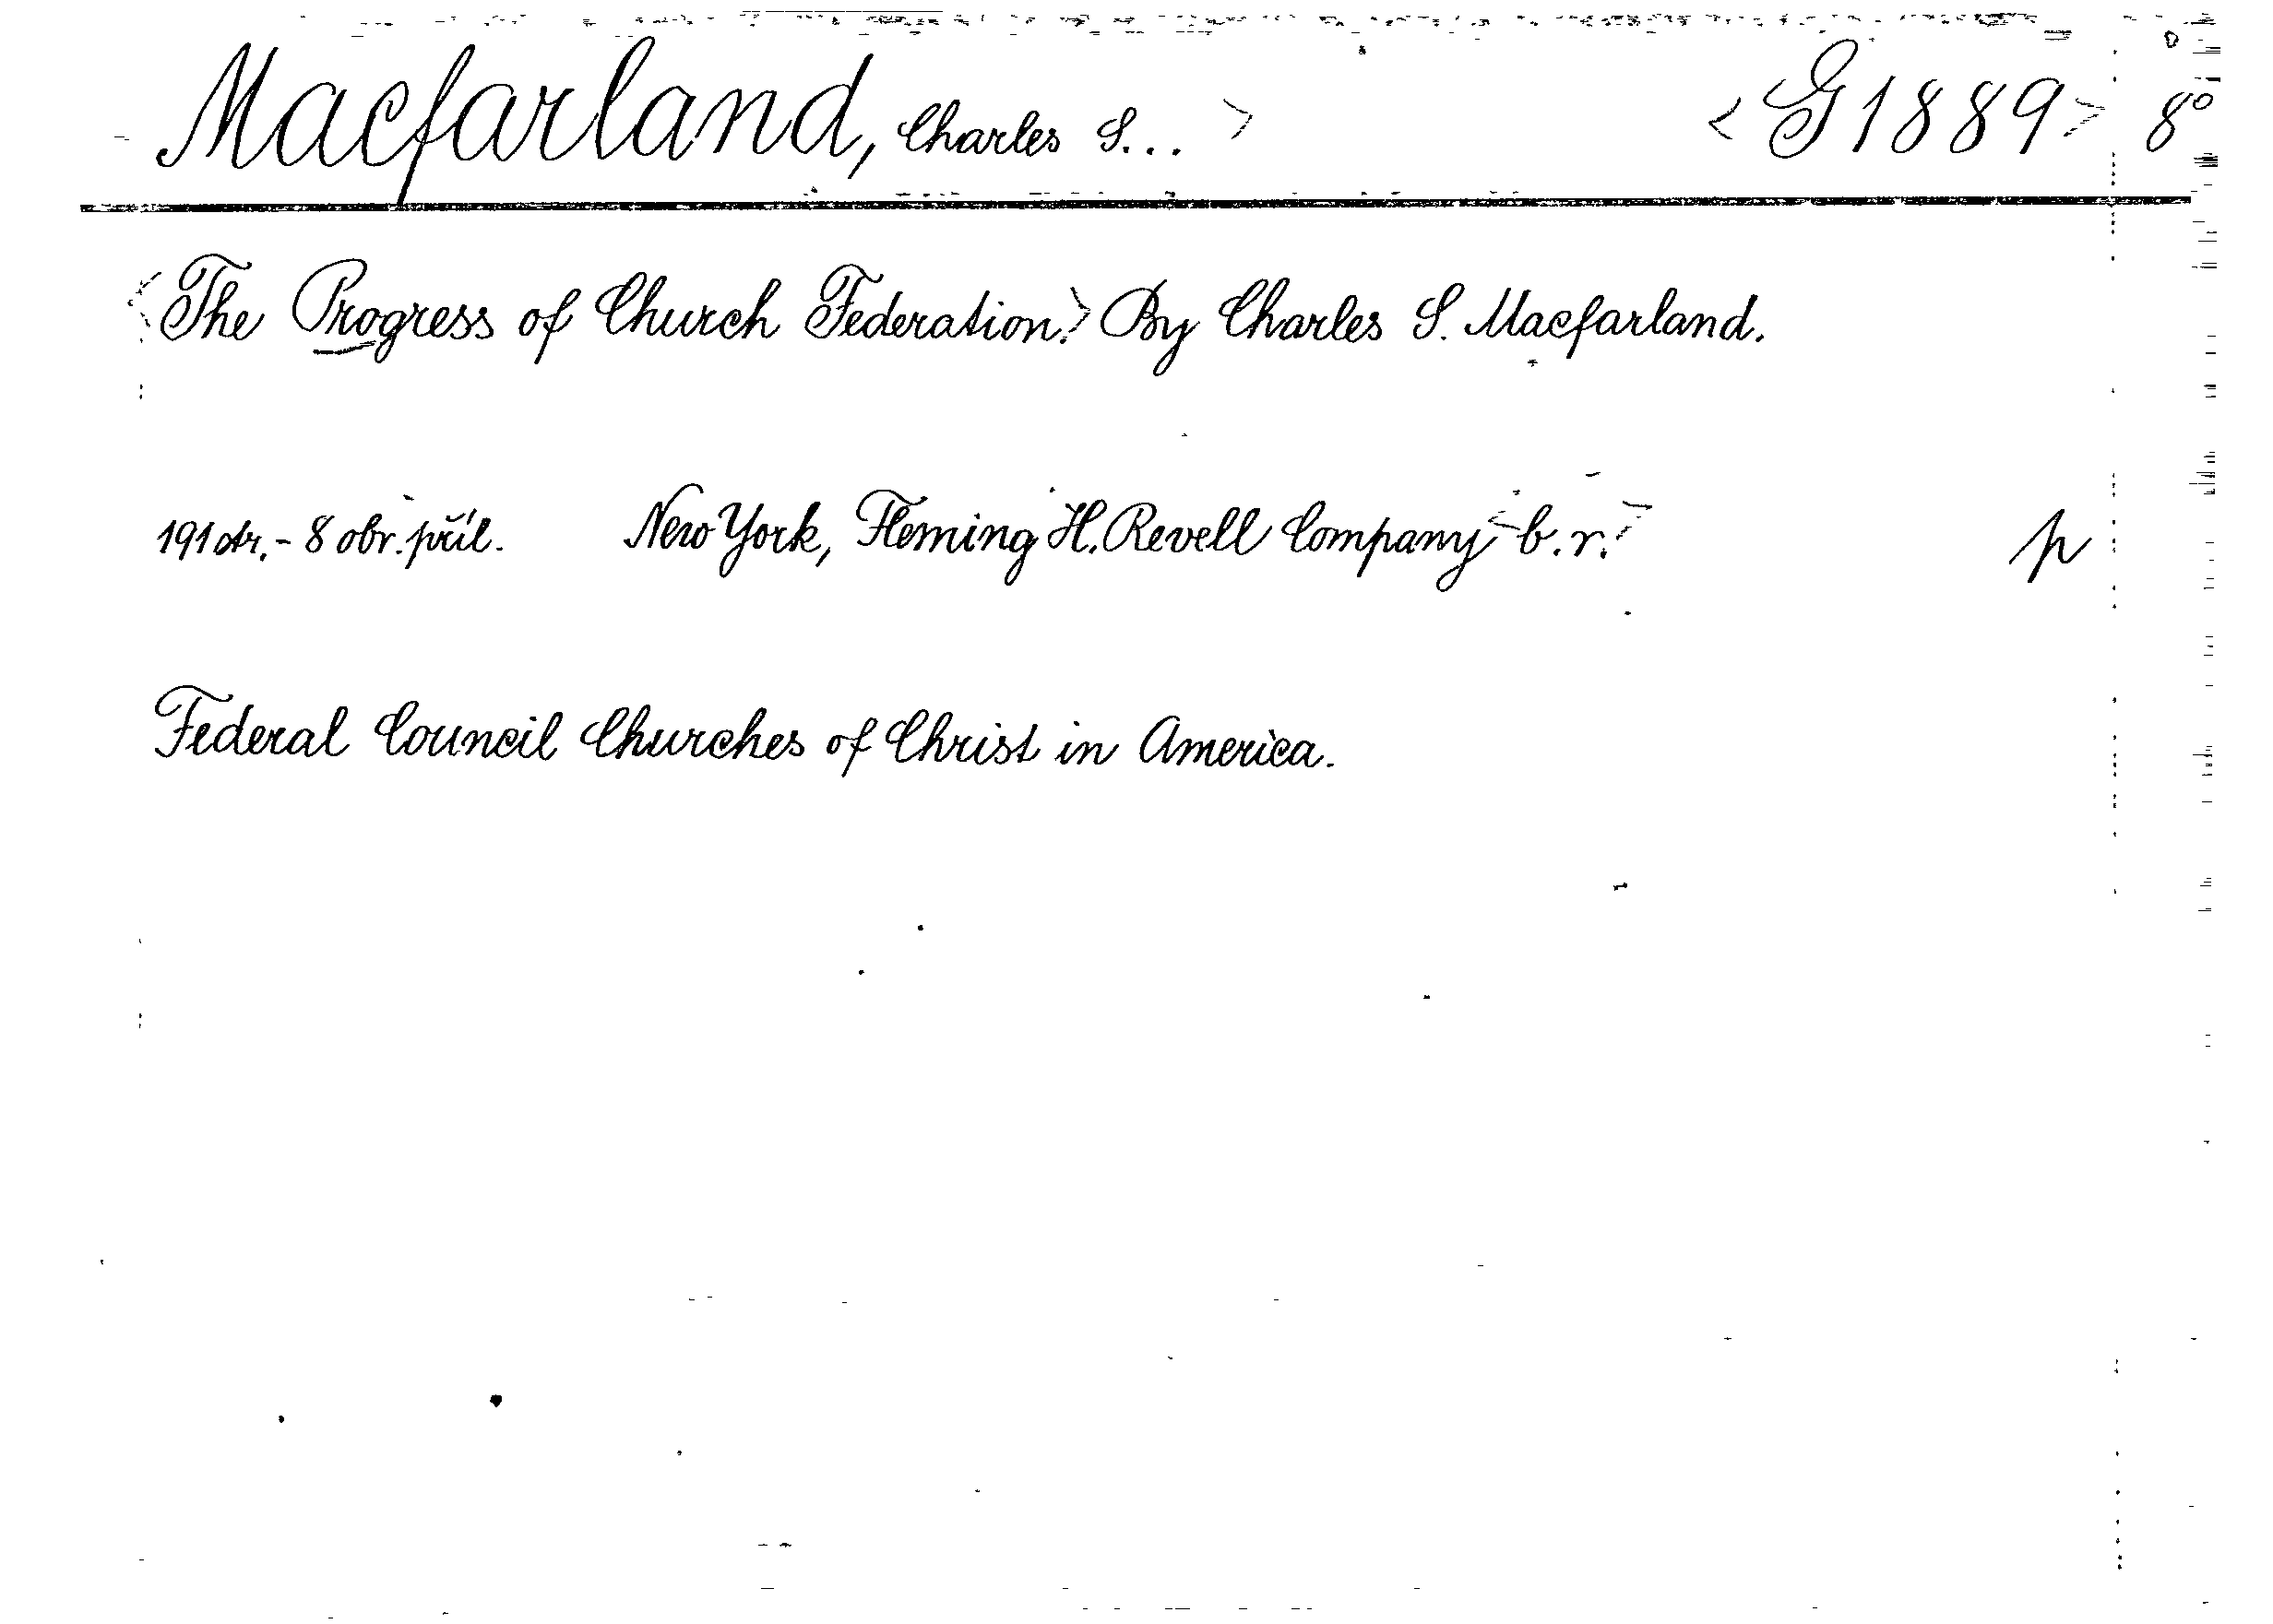 Macfarland, Charles S... > <G 1889> 8°
<The Progress of Church Federation.> By Charles S. Macfarland.
191 str. - 8 obr. příl. New York, Fleming H. Revell Company <b.r.> p
Federal Council Churches of Christ in America.